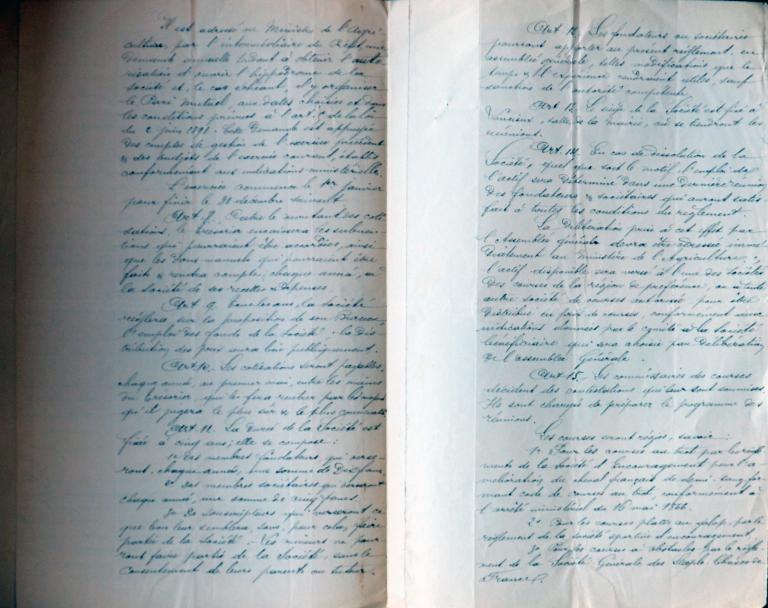 Il est adressé au Ministère de l'Agri-
culture, par l'intermédiaire du Préfet, une
demande annuelle tendant à obtenir l'auto-
risation d'ouvrir l'hippodrome de la
société et, le cas échéant, d'y organiser
le Pari Mutuel, aux dates choisies et dans
les conditions prévues à l'art. 5 de la loi
du 2 juin 1891. Cette demande est appuyée
des comptes de gestion de l'exercice précédent
& des budgets de l'exercice courant, établis
conformément aux indications ministérielles.
L'exercice commence le 1er Janvier
pour finir le 31 décembre suivant.
Art. 8. Outre le montant des coti-
sations, le trésorier encaissera les subven-
tions qui pourraient être accordées, ainsi
que les dons manuels qui pourraient être
faits & rendra compte, chaque année, à
la Société de ses recettes & dépenses.
Art. 9. Tous les ans, la Société
réglera sur la proposition de son Bureau,
l'emploi des fonds de la Société. La dis-
tribution des prix aura lieu publiquement.
Art. 10. Les cotisations seront payables,
chaque année, au premier mai, entre les mains
du trésorier, qui les fera rentrer par les moyens
qu'il jugera le plus sûr & le plus convenable.
Art. 11. La durée de la Société est
fixée à cinq ans; elle se compose:
1º Des membres fondateurs, qui verse-
ront, chaque année, une somme de Dix francs.
2º Des membres sociétaires qui verseront
chaque année, une somme de cinq francs.
3º De souscripteurs qui verseront ce
que bon leur semblera sans, pour cela, faire
partie de la Société. Les mineurs ne pour-
ront faire partie de la Société, sans le
consentement de leurs parents ou tuteur.
Art. 12. Les fondateurs ou sociétaires
pourront apporter au présent règlement, en
assemblée générale, telles modifications que le
temps & l'expérience rendraient utiles, sauf
sanction de l'autorité compétente.
Art. 13. Le siège de la Société est fixé à
salle de la mairie, où se tiendront les
réunions.
Art. 14. En cas de dissolution de la
Société, quel que soit le motif, l'emploi de
l'actif sera déterminé dans une dernière réunion
des fondateurs & sociétaires qui auront satis-
fait à toutes les conditions du règlement.
La délibération prise à cet effet par
l'Assemblée générale devra être adressée immé-
diatement au Ministère de l'Agriculture;
l'actif disponible sera versé à l'une des Sociétés
des courses de la région de préférence, ou à toute
autre société de courses autorisée, pour être
distribué en prix de courses, conformément aux
indications données par le comité à la Société
bénéficiaire qui sera choisie par délibération
de l'assemblée Générale.
Art. 15. Les commissaires des courses
décident des contestations qui leur sont soumises.
Ils sont chargés de préparer le programme des
réunions.
Les courses seront régies, savoir:
1º Pour les courses au trot par les règle-
ments de la Société d'Encouragement pour l'a-
mélioration du cheval français de demi-sang for-
mant code de courses au trot, conformément à
l'arrêté ministériel du 16 mai 1866.
2º Pour les courses plates au galop, par le
règlement de la société sportive d'encouragement.
3º Pour les courses à obstacles par le règle-
ment de la Société Générale des Steeple-Chases de
France.